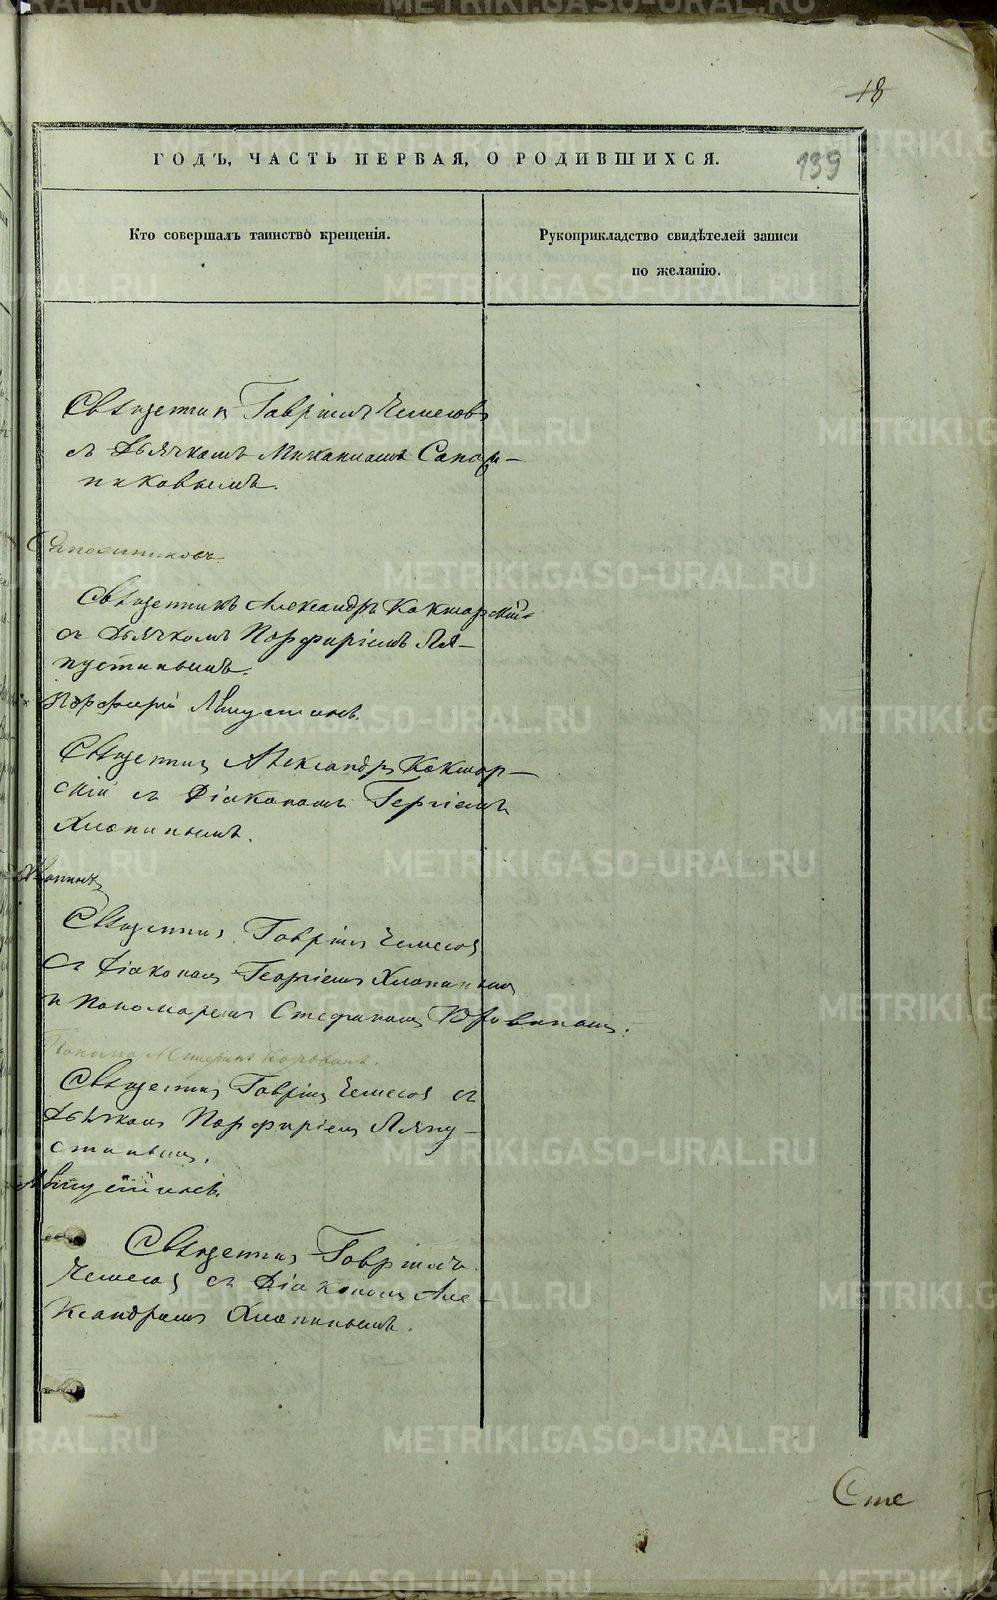 18
ГОДЪ, ЧАСТЬ ПЕРВАЯ, О РОДИВШИХСЯ.
139
Кто совершалъ таинство крещенія.
Рукоприкладство свидѣтелей записи
по желанію.
Священникъ Гавріилъ Чемесовъ
съ Дьячкомъ Михаиломъ Сапож-
никовымъ.
Сапожниковъ
Священникъ Александръ Кокшарскій
съ Дьячкомъ Порфиріемъ Ля-
пустинымъ.
Порфирій Ляпустинъ.
Священникъ Александръ Кокшар-
скій съ Діакономъ Георгіемъ
Хлопинымъ.
Хлопинъ
Священникъ Гавріилъ Чемесовъ
съ Діакономъ Георгіемъ Хлопинымъ
и Пономаремъ Стефаномъ
Священникъ Гавріилъ Чемесовъ съ
Дьячкомъ Порфиріемъ Ляпу-
стинымъ.
Ляпустинъ.
Священникъ Гавріилъ
Чемесовъ съ Діакономъ Але-
ксандромъ Хлопинымъ.
Сте
METRIKI.GASO-URAL.RU